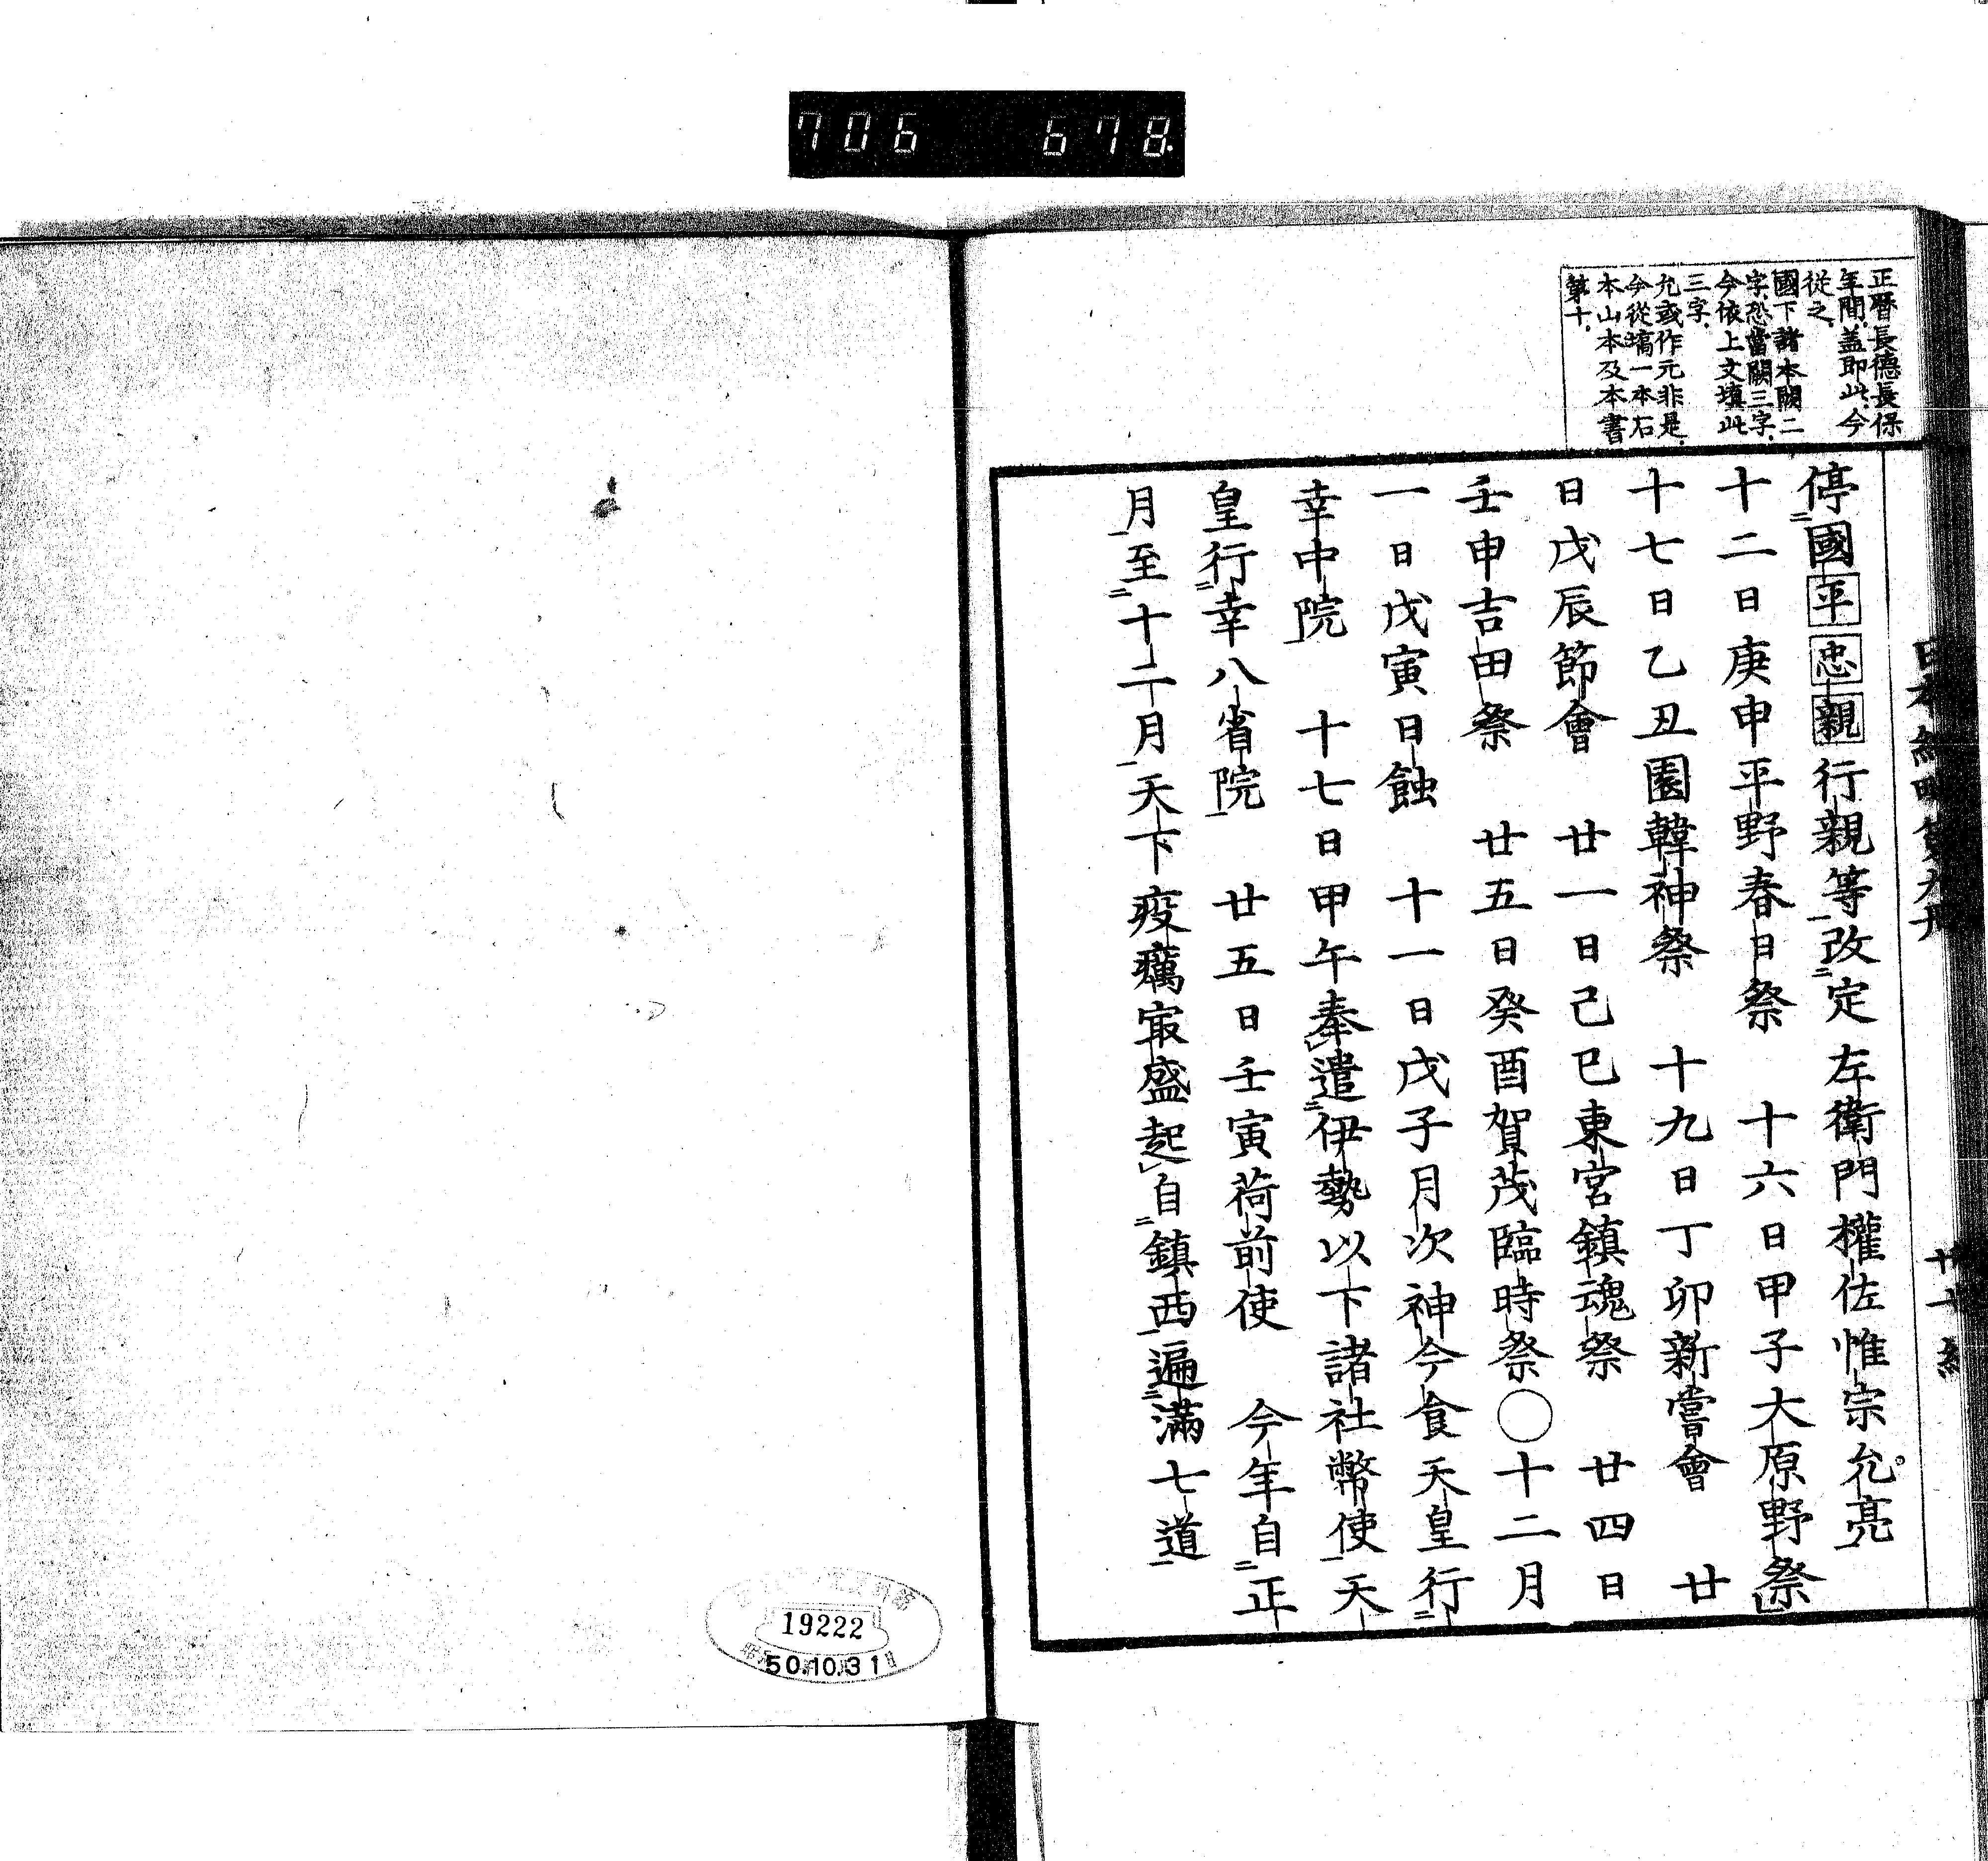 706 678
正暦長德長保
年間,盖即此,今
從之,
國下諸本闕二
字,恐當闕三字,
今依上文塡此
三字,
允或作元非是,
今從塙一本石
本山本及本書
第十,
停國平忠親行親等改定左衛門權佐惟宗允亮
十二日庚申平野春日祭　十六日甲子大原野祭
十七日乙丑園韓神祭　十九日丁卯新嘗會　廿
日戊辰節會　廿一日己巳東宮鎮魂祭　廿四日
壬申吉田祭　廿五日癸酉賀茂臨時祭〇十二月
一日戊寅日蝕　十一日戊子月次神今食天皇行
幸中院　十七日甲午奉遣伊勢以下諸社幣使天
皇行幸八省院　廿五日壬寅荷前使　今年自正
月至十二月天下疫癘冣盛起自鎮西遍滿七道
19222
50.10.31